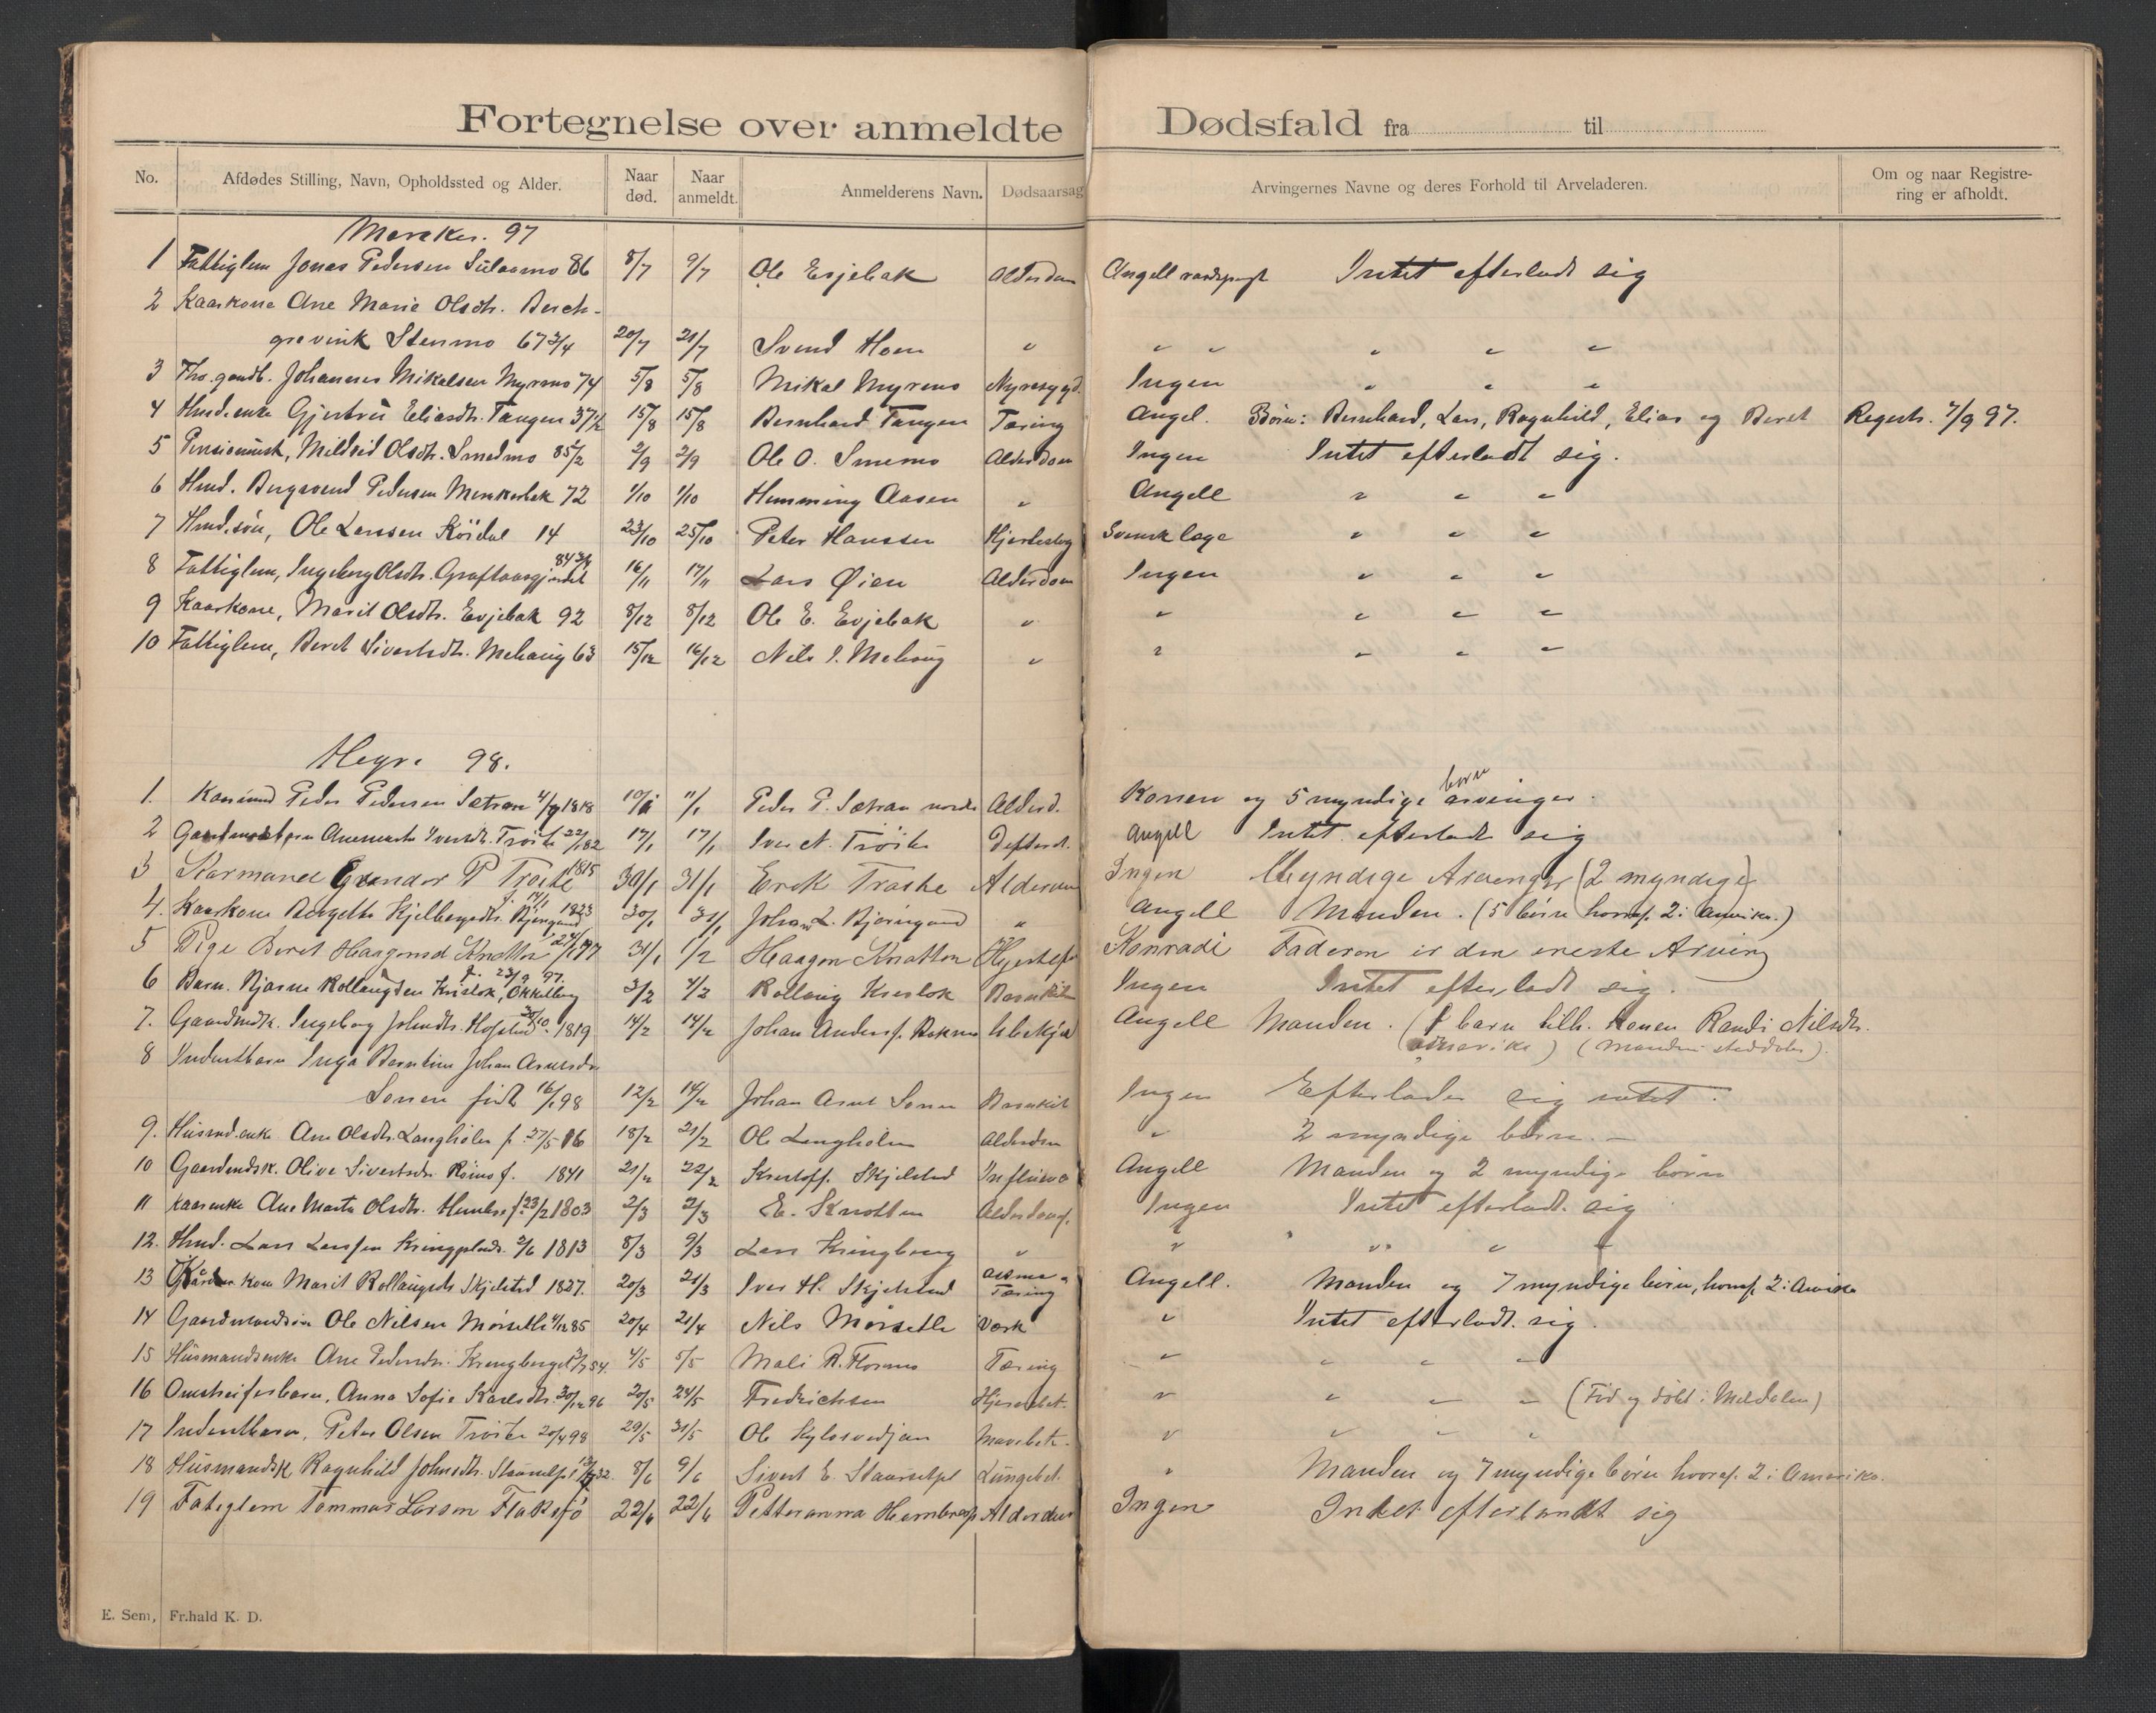 Fortegnelse over anmeldte Dødsfald fra til
No. Afdødes Stilling, Navn, Opholdssted og Alder. Naar død. Naar anmeldt. Anmelderens Navn. Dødsaarsag Arvingernes Navne og deres Forhold til Arveladeren. Om og naar Registrering er afholdt.
Meraker. 97
1 Fattiglem Jonas Pedersen Sulaamo 86 8/7 9/7 Ole Evjebak Alderdom Angell Intet efterladt sig
2 Kaarkone Ane Marie Olsdtr.
Stenmo 67 3/4 20/7 21/7 Svend Hoen " " " " " "
3 Johannes Mikalsen Myrmo 74 5/8 5/8 Mikal Myrmo Nyresygd. Ingen " " "
4 Hmd.enke Gjertru Eliasdtr. Tangen 37 1/2 15/8 15/8 Bernhard Tangen Tæring Angel. Börn: Bernhard, Lars, Ragnhild, Elias og Beret Registr. 7/9 97.
5 Pensionist, Mildrid Olsdtr. Smedmo 85 1/2 2/9 2/9 Ole O. Smemo Alderdom Ingen Intet efterladt sig.
6 Hmd. Bergsvend Pedersen Merakerbak 72 1/10 1/10 Hemming Aasen " Angell " " "
7 Hmd.sön, Ole Larssen Ködal 14 23/10 25/10 Peter Hanssen Hjertesyg Svensk læge " " "
8 Fattiglem, Ingeborg Olsdtr. 84 3/4 16/11 17/11 Lars Øien Alderdom Ingen " " "
9 Kaarkone, Marit Olsdtr. Evjebak 92 8/12 8/12 Ole E. Evjebak " " " " "
10 Fattiglem, Beret Sivertsdtr. Mehaug 63 15/12 16/12 Nils J. Mehaug " " " " "
Hegre 98.
1. Peder Pedersen Sætran 4/9 1818 10/1 11/1 Peder P. Sætran nordre Alderd. Konen og 5 myndige börn arvinger.
2 Iversdtr. Tröite 22/1 82 17/1 17/1 Iver N. Tröite Angell Intet efterladt sig
3 Karmand P Troite 1815 30/1 31/1 Erik Troite Alderdom Ingen Myndige Arvinger (2 myndige)
4. Kaarkone 1823 30/1 31/1 Johan L. Björingaard " Angell Manden. (5 börn hvoraf 2 i Amerika.)
5 Pige Beret Haagensd Knotten 31/1 1/2 Haagen Knotten Konradi Faderen er den eneste Arving
6 Barn. Bjarne f. 23/9 97. 3/2 4/2 Ingen Intet efterladt sig.
7. Gaardmdk. Ingeborg Johnsdtr. Hofstad 20/10 1819 14/2 14/2 Johan Angell Manden. (1 barn tilh. konen Randi Nilsdtr.
Amerika)
8 Inderstbarn Inga Berntine Johan
Sonen född 16/1 98 12/2 14/2 Johan Arnt Sonen Ingen Efterlader sig intet.
9. Husmd.enke Ane Olsdtr. Langholen f. 27/5 16 18/2 21/2 Ole Langholen Alderdom " 2 myndige börn.
10 Gaardmdsk. Olive Sivertsdr. f. 1841 21/2 22/2 Kristoff. Skjelstad Influensa Angell Manden og 2 myndige börn
11 Kaarenke Ane Marta Olsdtr. f. 23/2 1803 2/3 2/3 E. Knotten Alderdomf. Ingen Intet efterladt sig
12. Hmd. Lars Larssen 2/6 1813 8/3 9/3 Lars Kringberg " " " " "
13 kone Marit Rollaugsdtr Skjelstad 1827. 20/3 21/3 Iver H. Skjelstad Astma Tæring Angell. Manden og 7 myndige börn, hvoraf 2 i Amerika
14 Gaardmandssön Ole Nilsen Mörsetli 4/12 85 20/4 21/4 Nils Mörsetli Værk " Intet efterladt sig.
15 Husmandsenke Ane Pedersdtr. 4/5 5/5 Mali R. Flornes Tæring " " " "
16 Anna Sofie Karlsdtr. 30/12 96 20/5 24/5 Fredrichsen " " " " (Föd og död i Meldalen)
17 Inderstbarn, Peter Olsen Tröite 20/4 98 29/5 31/5 Ole " " " "
18 Husmandsk Ragnhild Johnsdtr. 8/6 9/6 Sivert E. " Manden og 7 myndige börn hvoraf 2 i Amerika.
19 Fatiglem Tommas Larsen Flaksjö 22/6 22/6 Petteranna Alderdom Ingen Indet efterlandt sig
E. Sem, Fr.hald K. D.